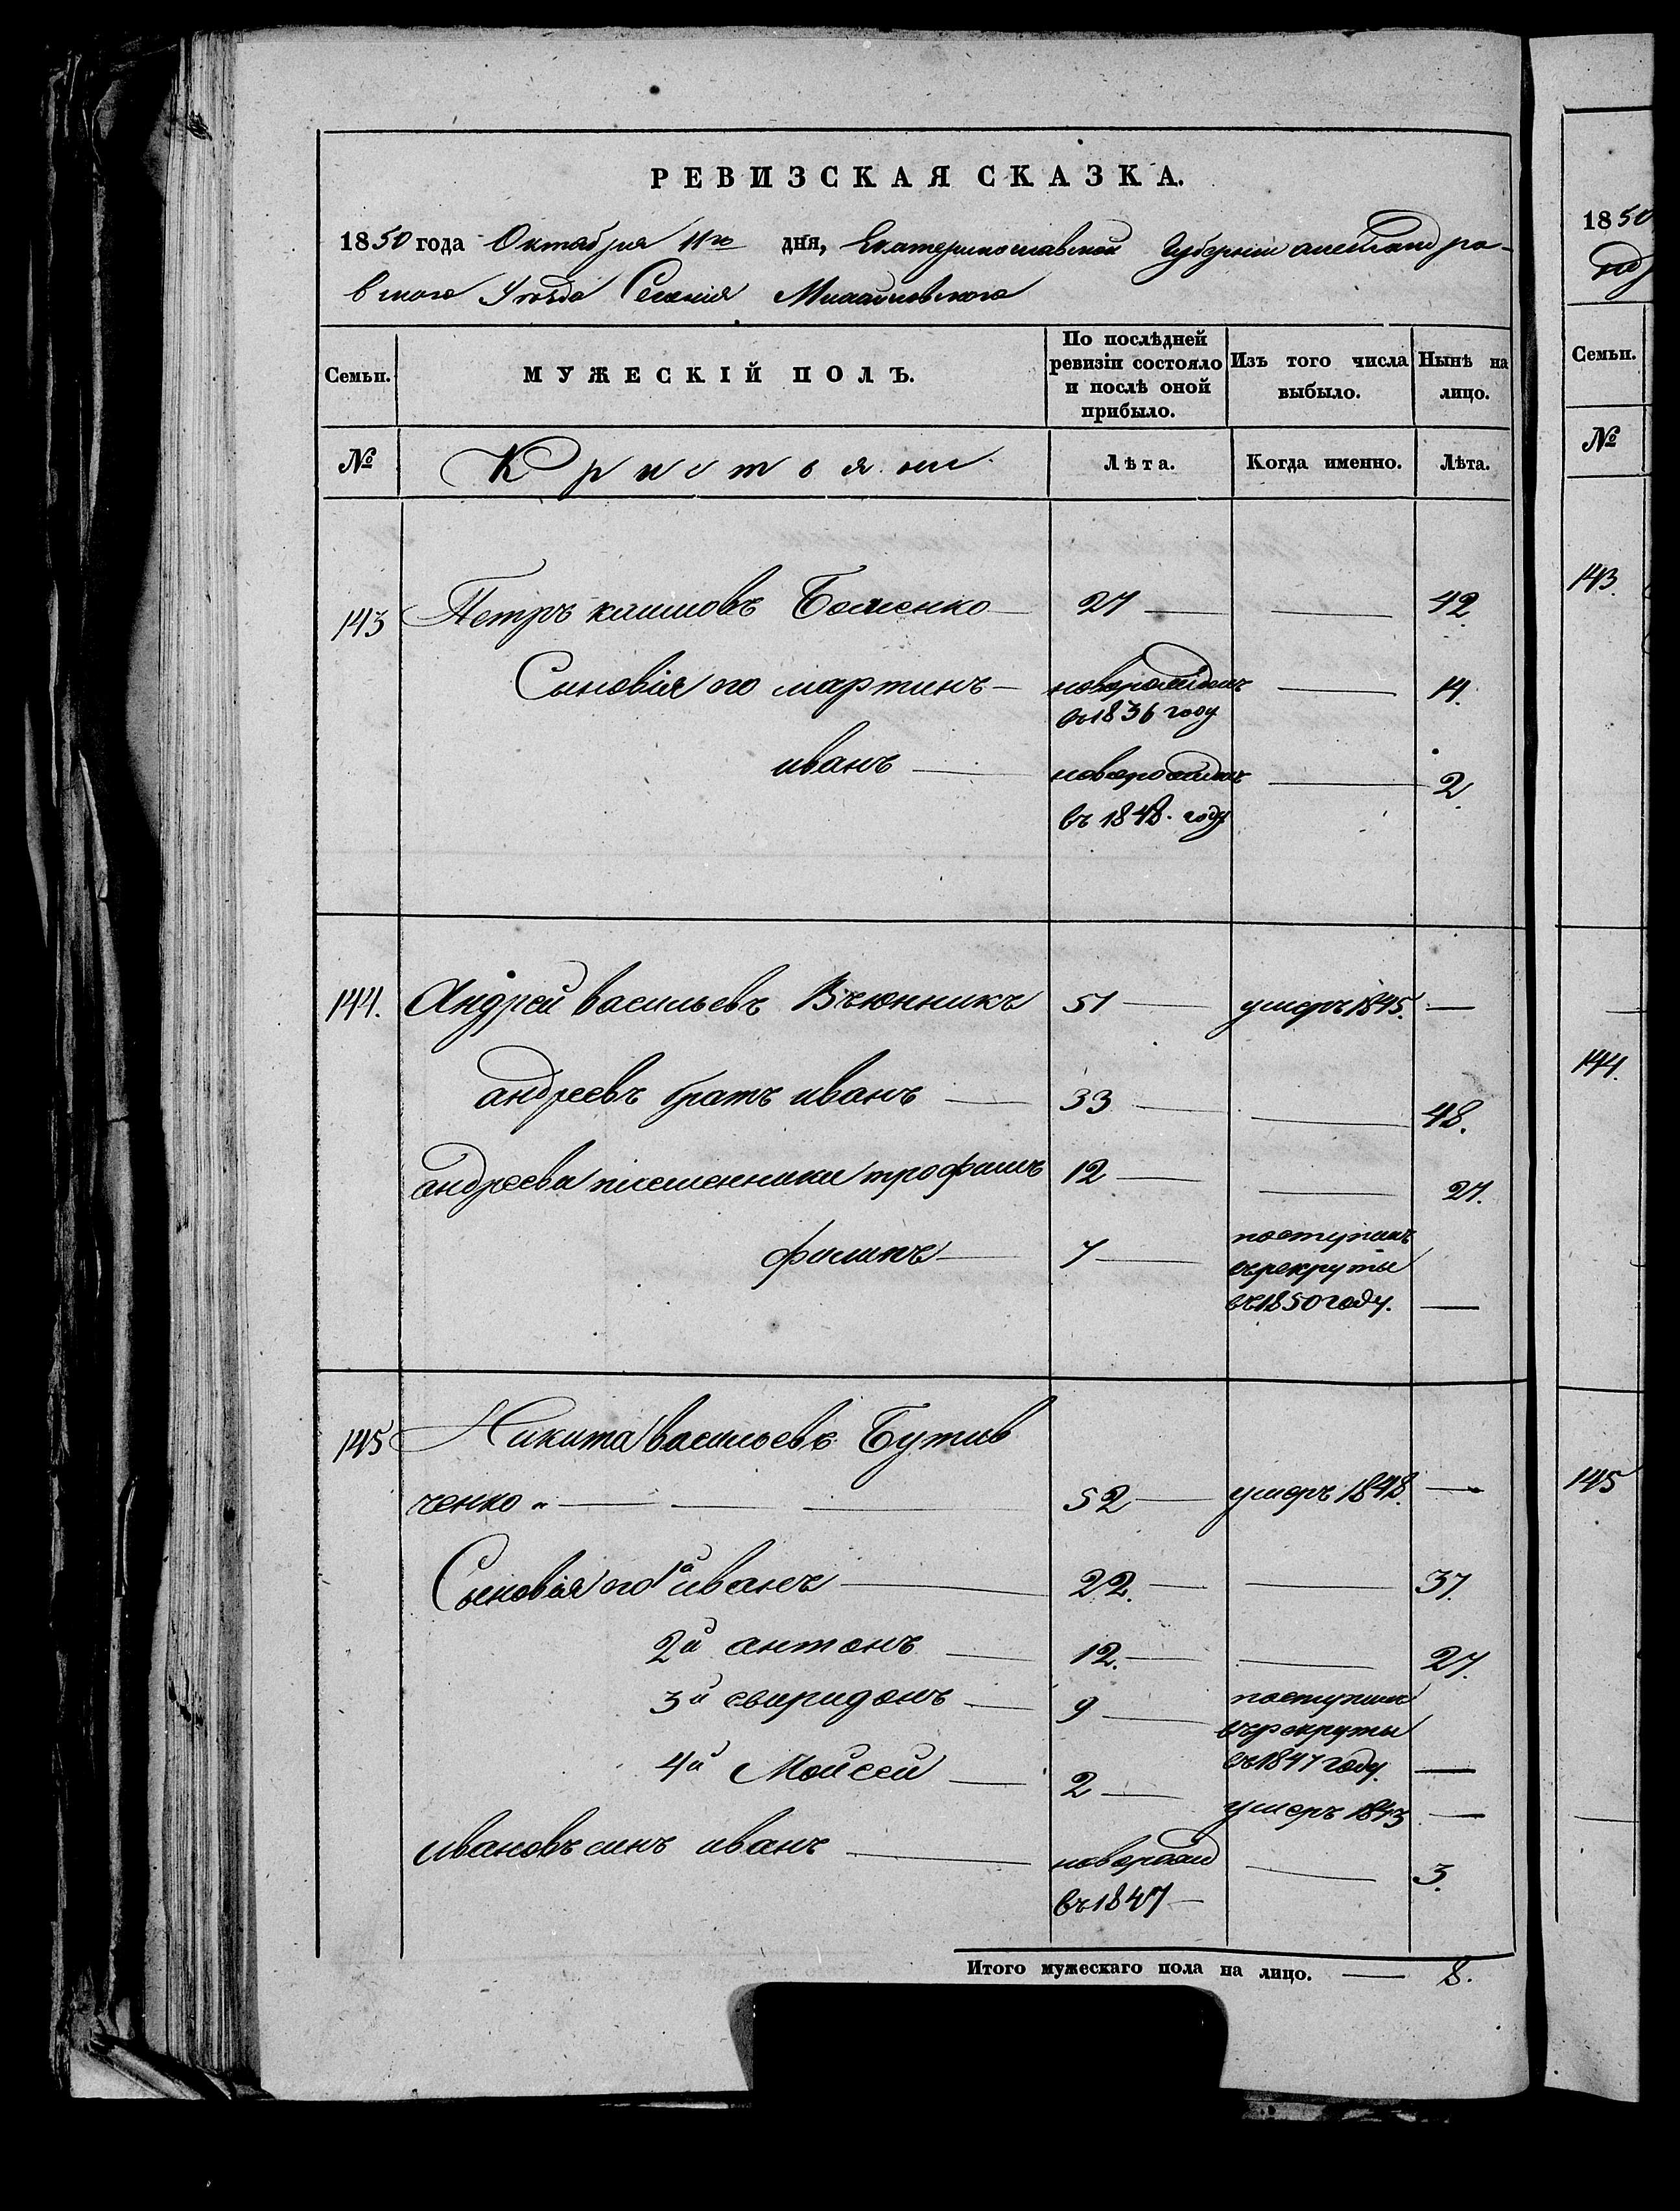 РЕВИЗСКАЯ СКАЗКА.
1850 года Октября 11го дня, Екатеринославской Губернии александро-
вского Уезда Селения Михайловского
Семьи. МУЖЕСКІЙ ПОЛЪ. По послѣдней ревизіи состояло и послѣ оной прибыло. Изъ того числа выбыло. Нынѣ на лицо.
№ Кристьяни Лѣта. Когда именно. Лѣта.
143 Петръ климовъ 27 — — 42
Сыновія го мартинъ — новорожденъ въ 1836 году — 14.
иванъ — новорожденъ въ 1848. году — 2.
144. Андрей васильевъ Вьюнникъ 51 — умеръ 1845. —
андреевъ братъ иванъ — 33 — — 48.
андреевы племенники трофимъ 12 — — 27.
филипъ — 7 — поступилъ въ рекруты въ 1850 году. —
145 Никита васильевъ Бутив
ченко „ — — — 52 — умеръ 1848. —
Сыновія го 1й иванъ — 22. — — 37.
2й антонъ — 12. — — 27.
3й свиридонъ — 9 — поступилъ въ рекруты въ 1847 году. —
4й Мойсей — 2 — умеръ 1843 —
ивановъ синъ иванъ — новорожд въ 1847 — — 3.
Итого мужескаго пола на лицо. — 8.
1850
Семьи.
№
143.
144.
145